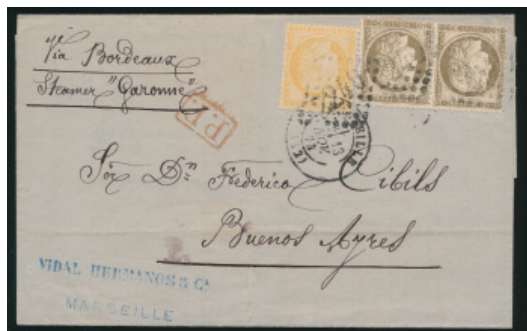 Via Bordeaux
Steamer "Garonne"
P.P.
Sor Dn Frederico Cibils
Buenos Ayres
VIDAL HERMANOS & Ca
MARSEILLE